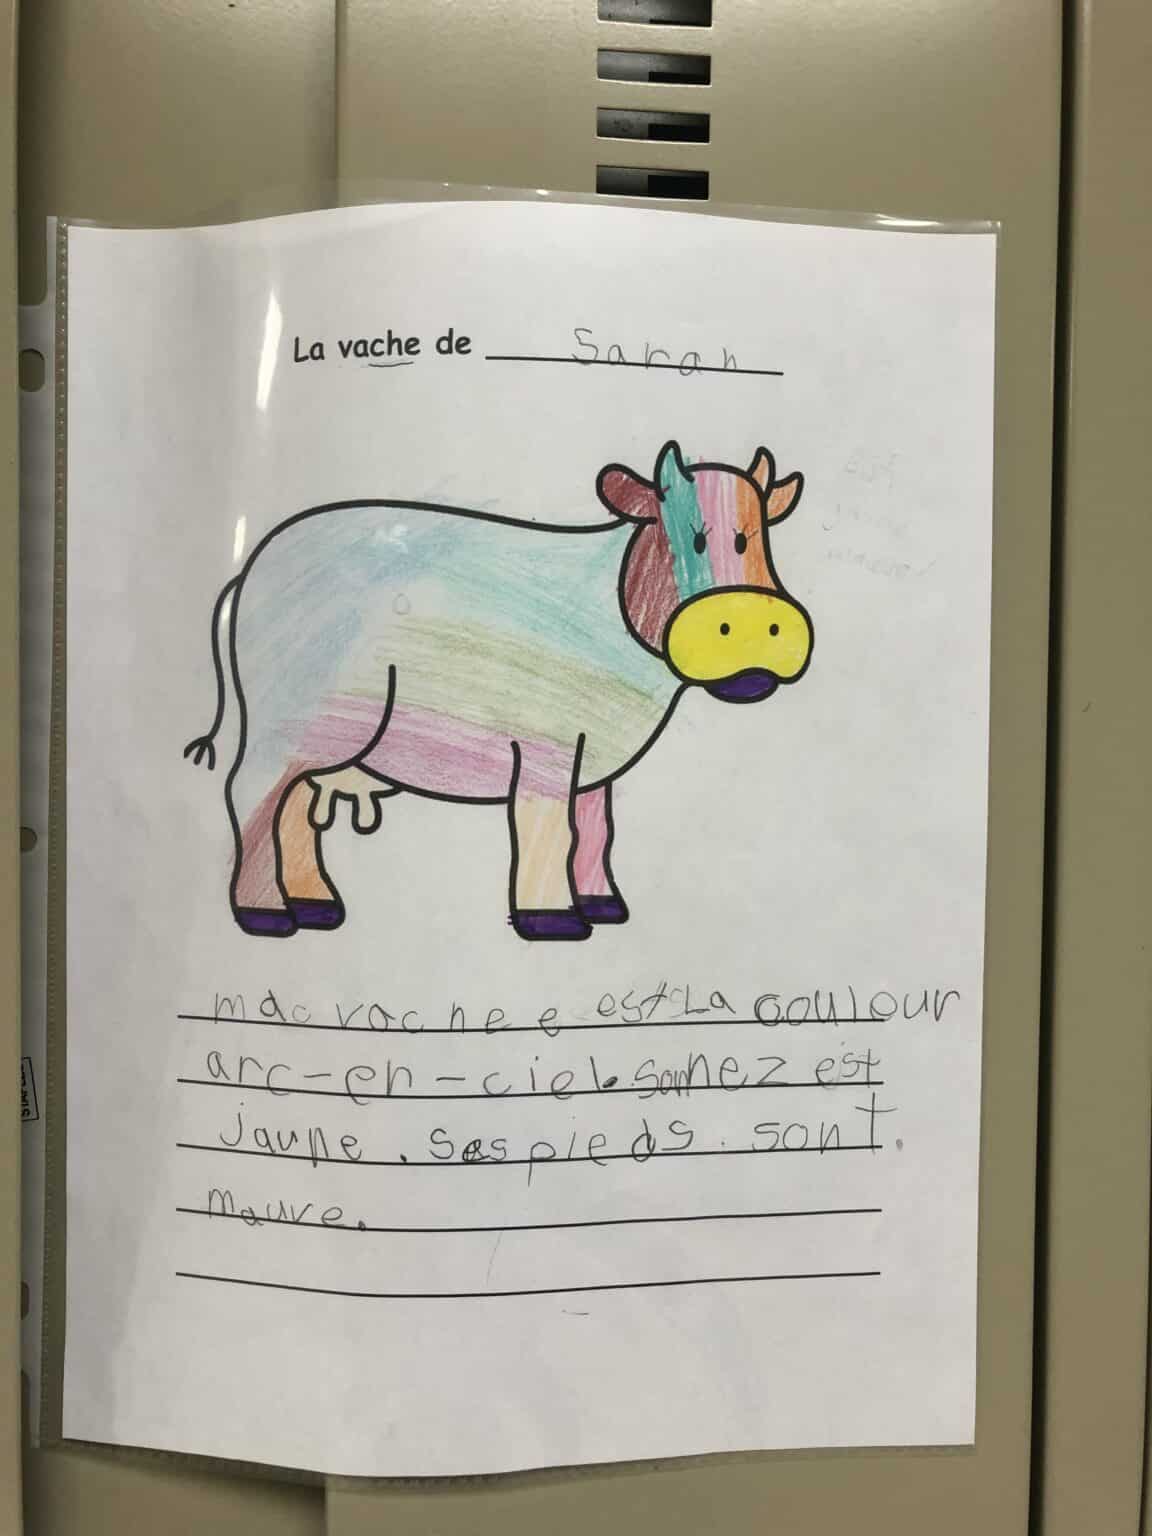 La vache de Sarah
ma vache e est La couleur
arc-en-ciel. Son nez est
jaune. Ses pieds. sont.
mauve.